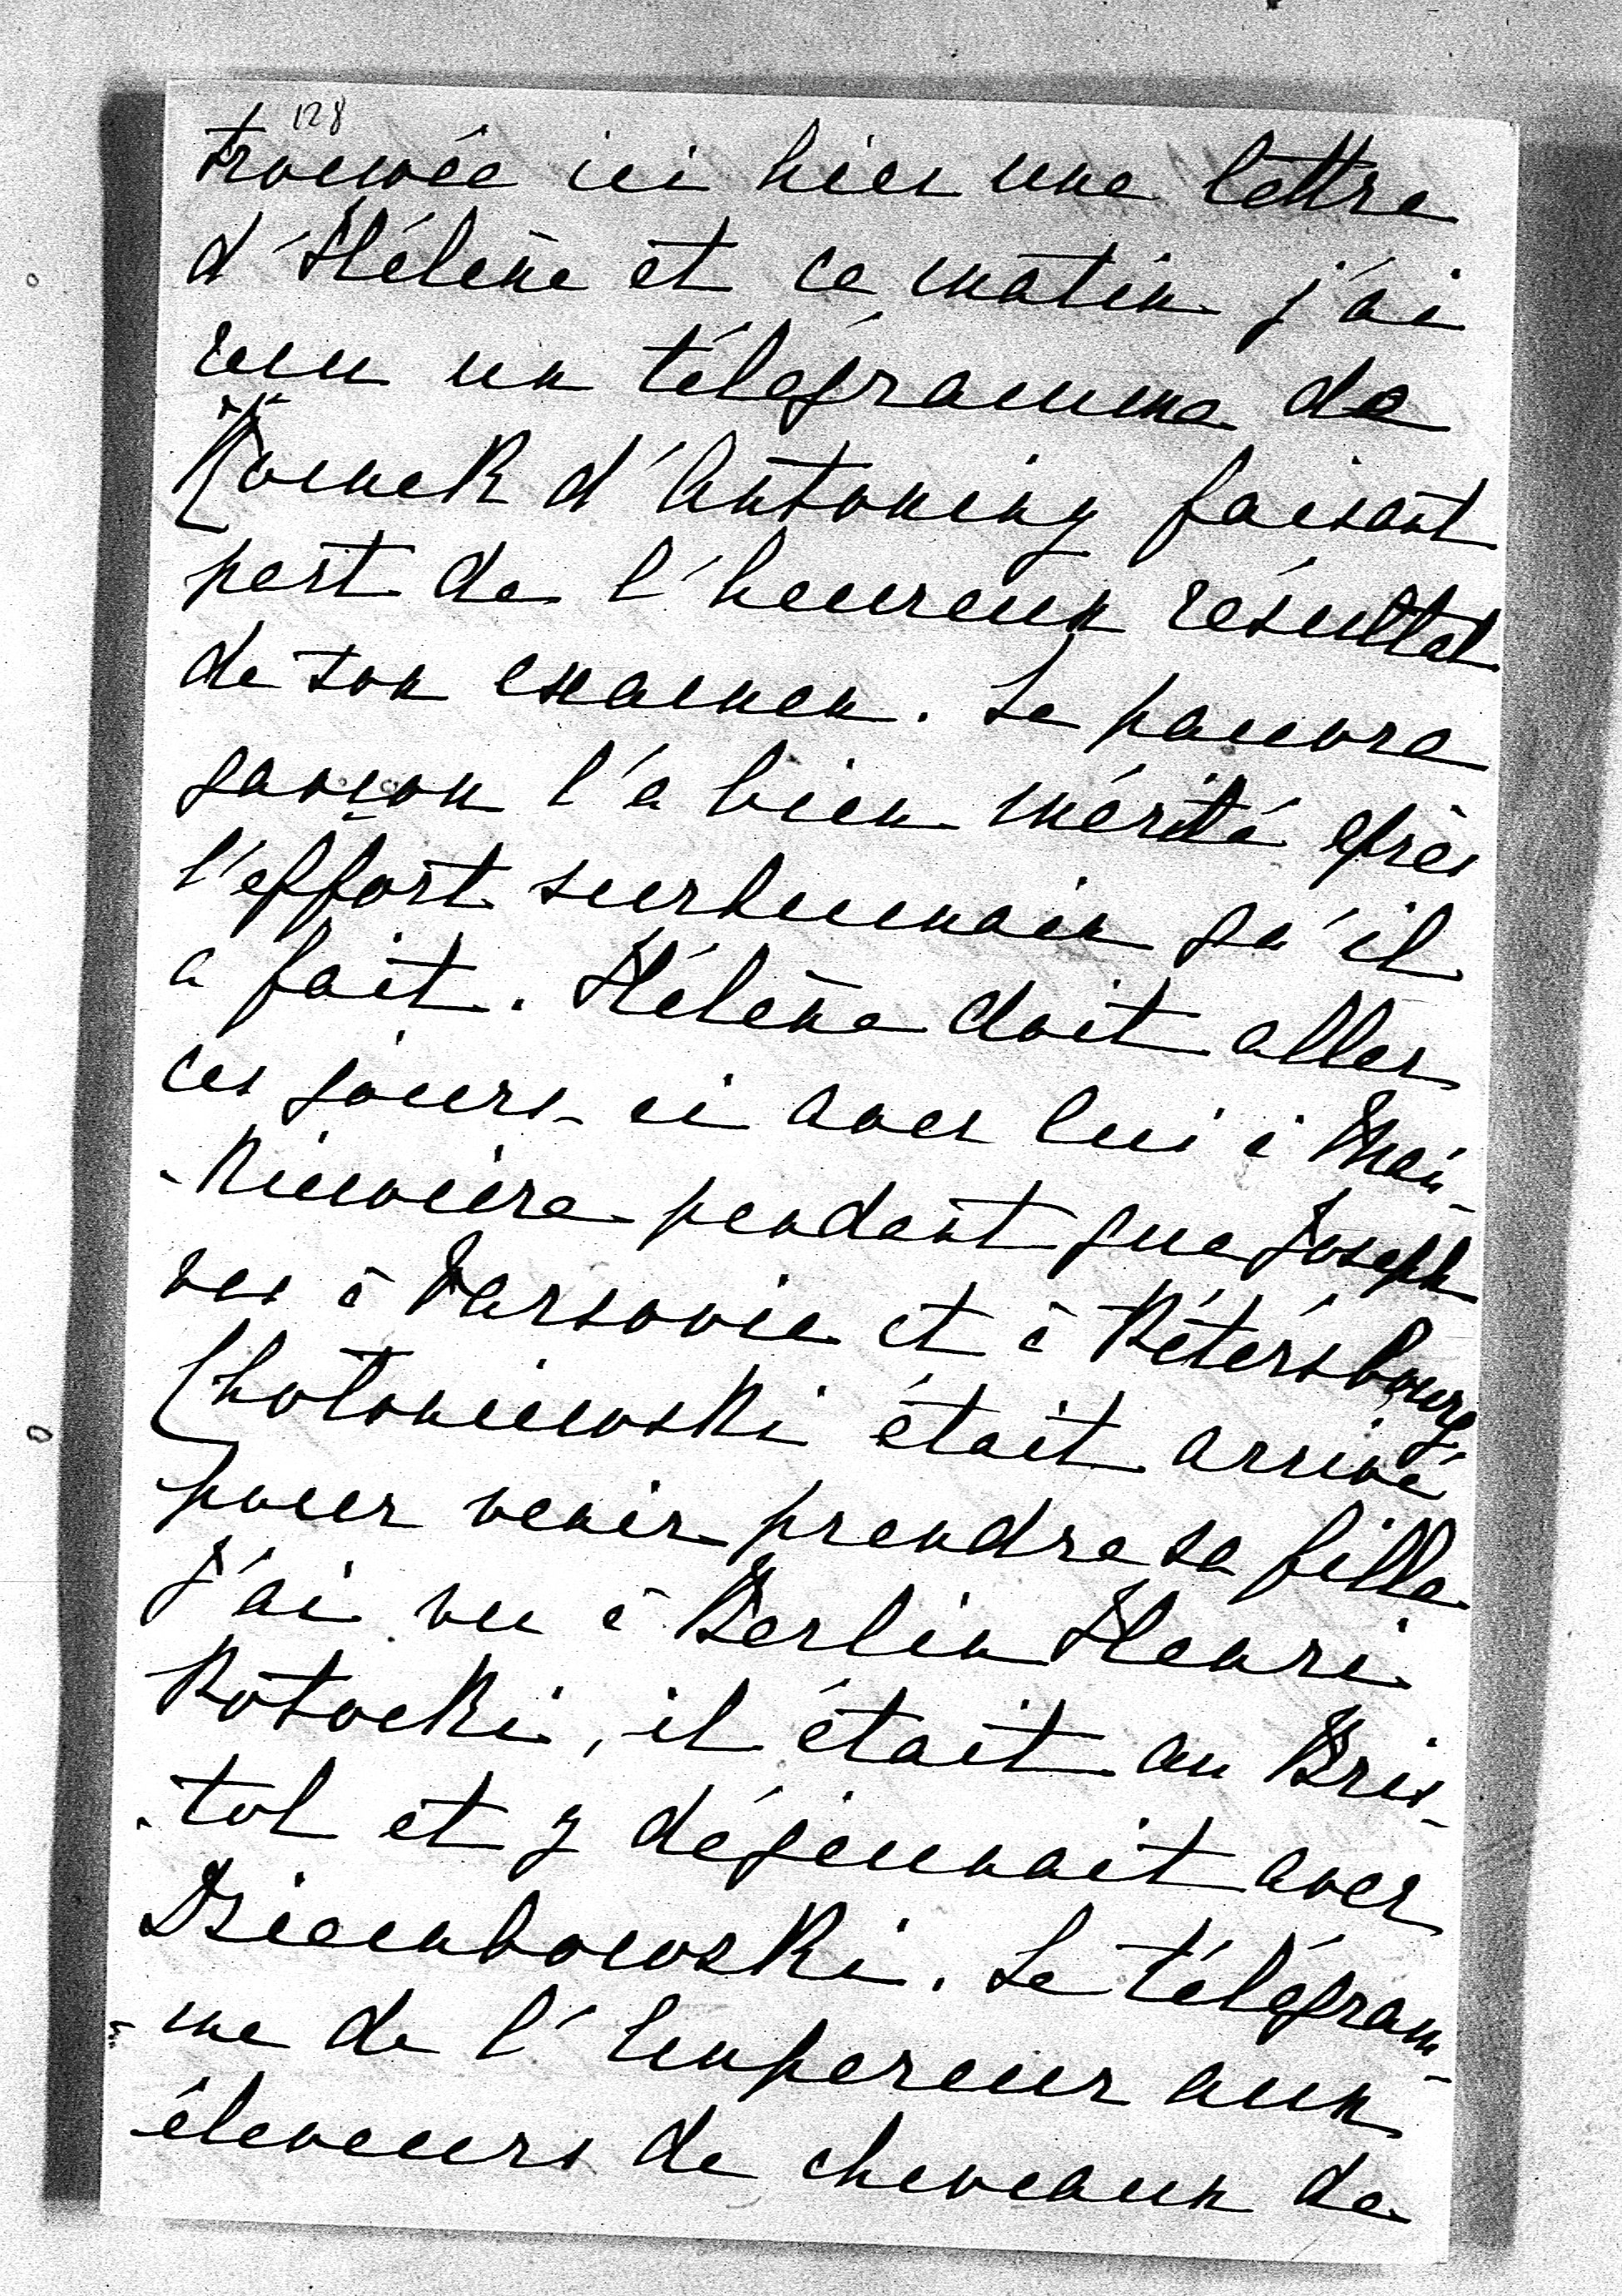 128
trouvée ici hier une lettre
d'Hélène et ce matin j'ai
reçu un télégramme de
Romek d'Antoniny faisant
part de l'heureux résultat
de son examen. Le pauvre
garçon l'a bien mérité après
l'effort surhumain qu'il
a fait. Hélène doit aller
ces jours-ci avec lui à
pendant que Joseph
va à Varsovie et à Pétersbourg.
Choloniewski était arrivé
pour venir prendre sa fille.
J'ai vu à Berlin Henri
Potocki, il était au Bris-
-tol et y déjeunait avec
Dziembowski. Le télégram-
-me de l'Empereur aux
éleveurs de cheveaux de